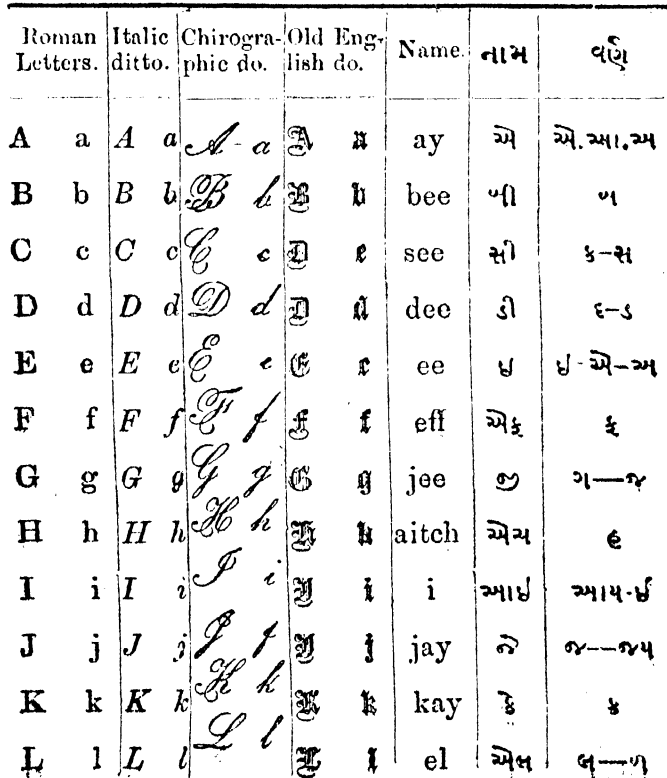 Roman Letters. Italic ditto. Chirogra- phic do. Old Eng- lish do. Name. નામ વર્ણ
A a A a A a A a ay એ એ.આ.અ
B b B b B b B b bee બી બ
C c C c C c D c see સી ક–સ
D d D d D d D d dee ડી દ–ડ
E e E e E e E e ee ઇ ઇ-એ–અ
F f F f F f F f eff એફ ફ
G g G g G g G g jee જી ગ—જ
H h H h H h H h aitch એચ હ
I i I i I i I i i આઇ આય-ઈ
J j J j J j J j jay જે જ--જય
K k K k K k K k kay કે ક
L l L l L l L l el એલ લ—ળ